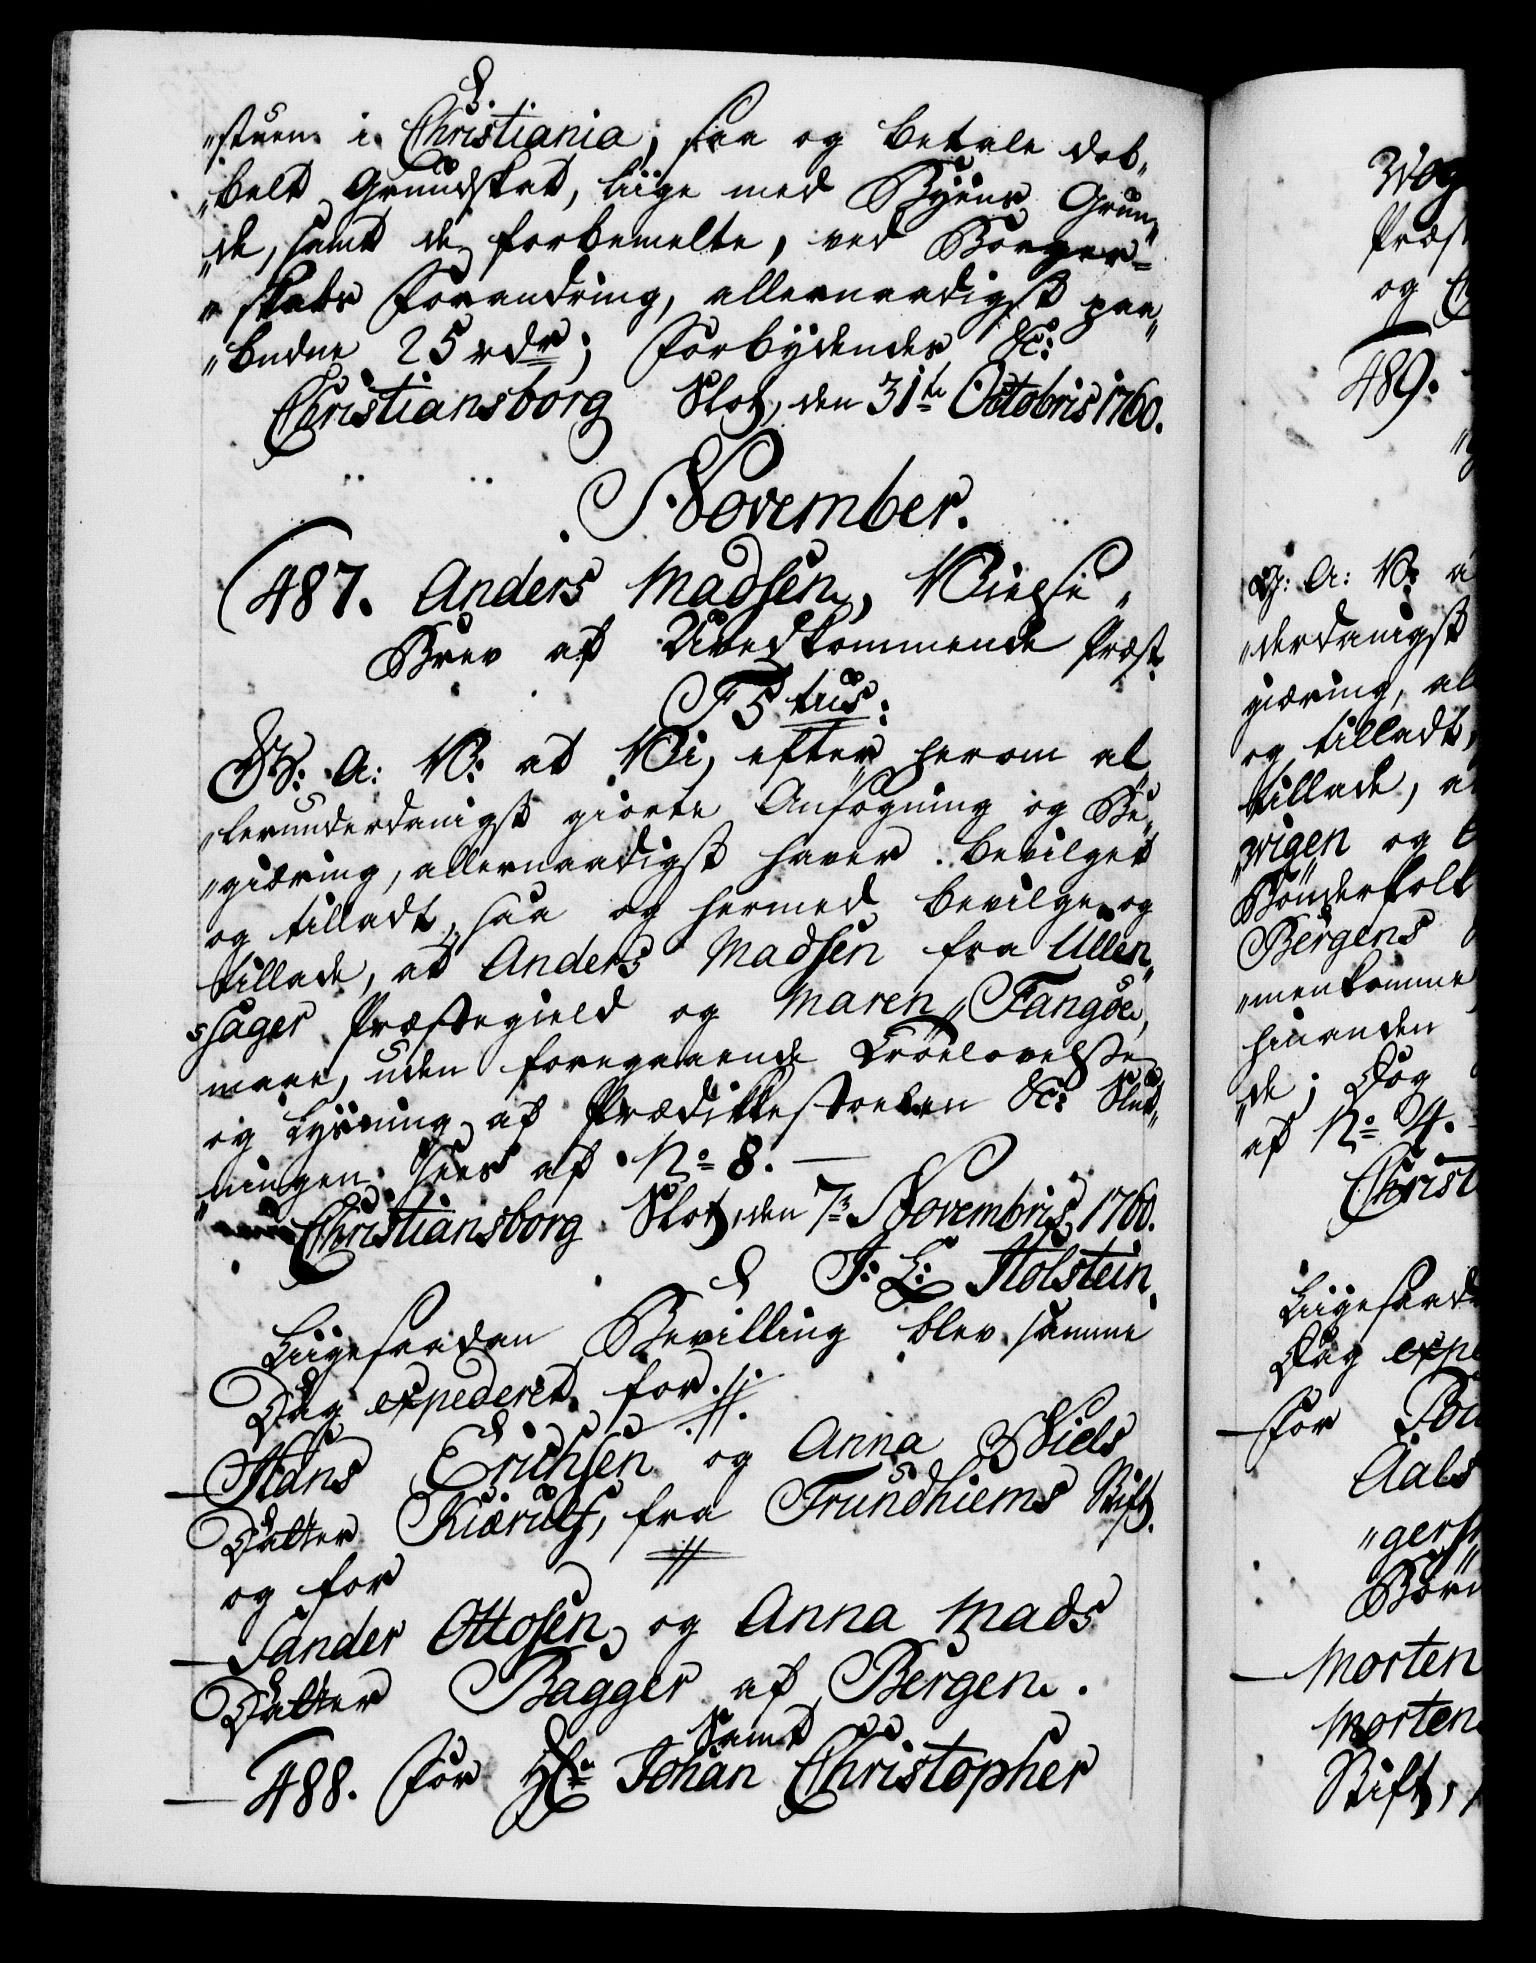 „stuen i Christiania, saa og betale dob„
„belt Grundskat, liige med Byens Grun„
„de, samt de forbemelte, ved Borger-
„skabs Forandring, allernaadigst paa„
„budne 25 rdr; Forbydendes &c:
Christiansborg Slot, den 31te Octobris 1760.
November.
487. Anders Madsen, Vielse„
Brev af Uvedkommende Præst.
F5tus:
G: A: V: at Vi, efter herom al„
„lerunderdanigst giorte Ansøgning og Be„
„giæring, allernaadigst haver bevilget
og tilladt, saa og hermed bevilge og
tillade, at Anders Madsen fra Ullen„
„sager Præstegield og Maren Fangøe,
maae, uden foregaaende Trolovelse
og Lysning af Prædikkestoelen &c: Slut„
„ningen sees af No 8.
Christiansborg Slot, den 7de Novembris 1760.
J: L: Holstein.
Liigesaadan Bevilling blev samme
Dag expederet for //.
Hans Erichsen og Anna Niels
Datter Kiærulf, fra Trundhiems Stift.
og for
Sander Ottosen og Anna Mads
Datter Bagger af Bergen.
Samt
488. For Hr Johan Christopher
Præst
og
489.
G: A: V: a
„derdanigst
giæring, al
og tilladt,
tillade, a
„wigen og
Bønderfolk
Bergens
„menkomme
hinanden
„de; Dog
af No 4.
Christ
Liigesaad
Dag expe
for
Aals
„gers
Børn
Morten
Morten
Stift,